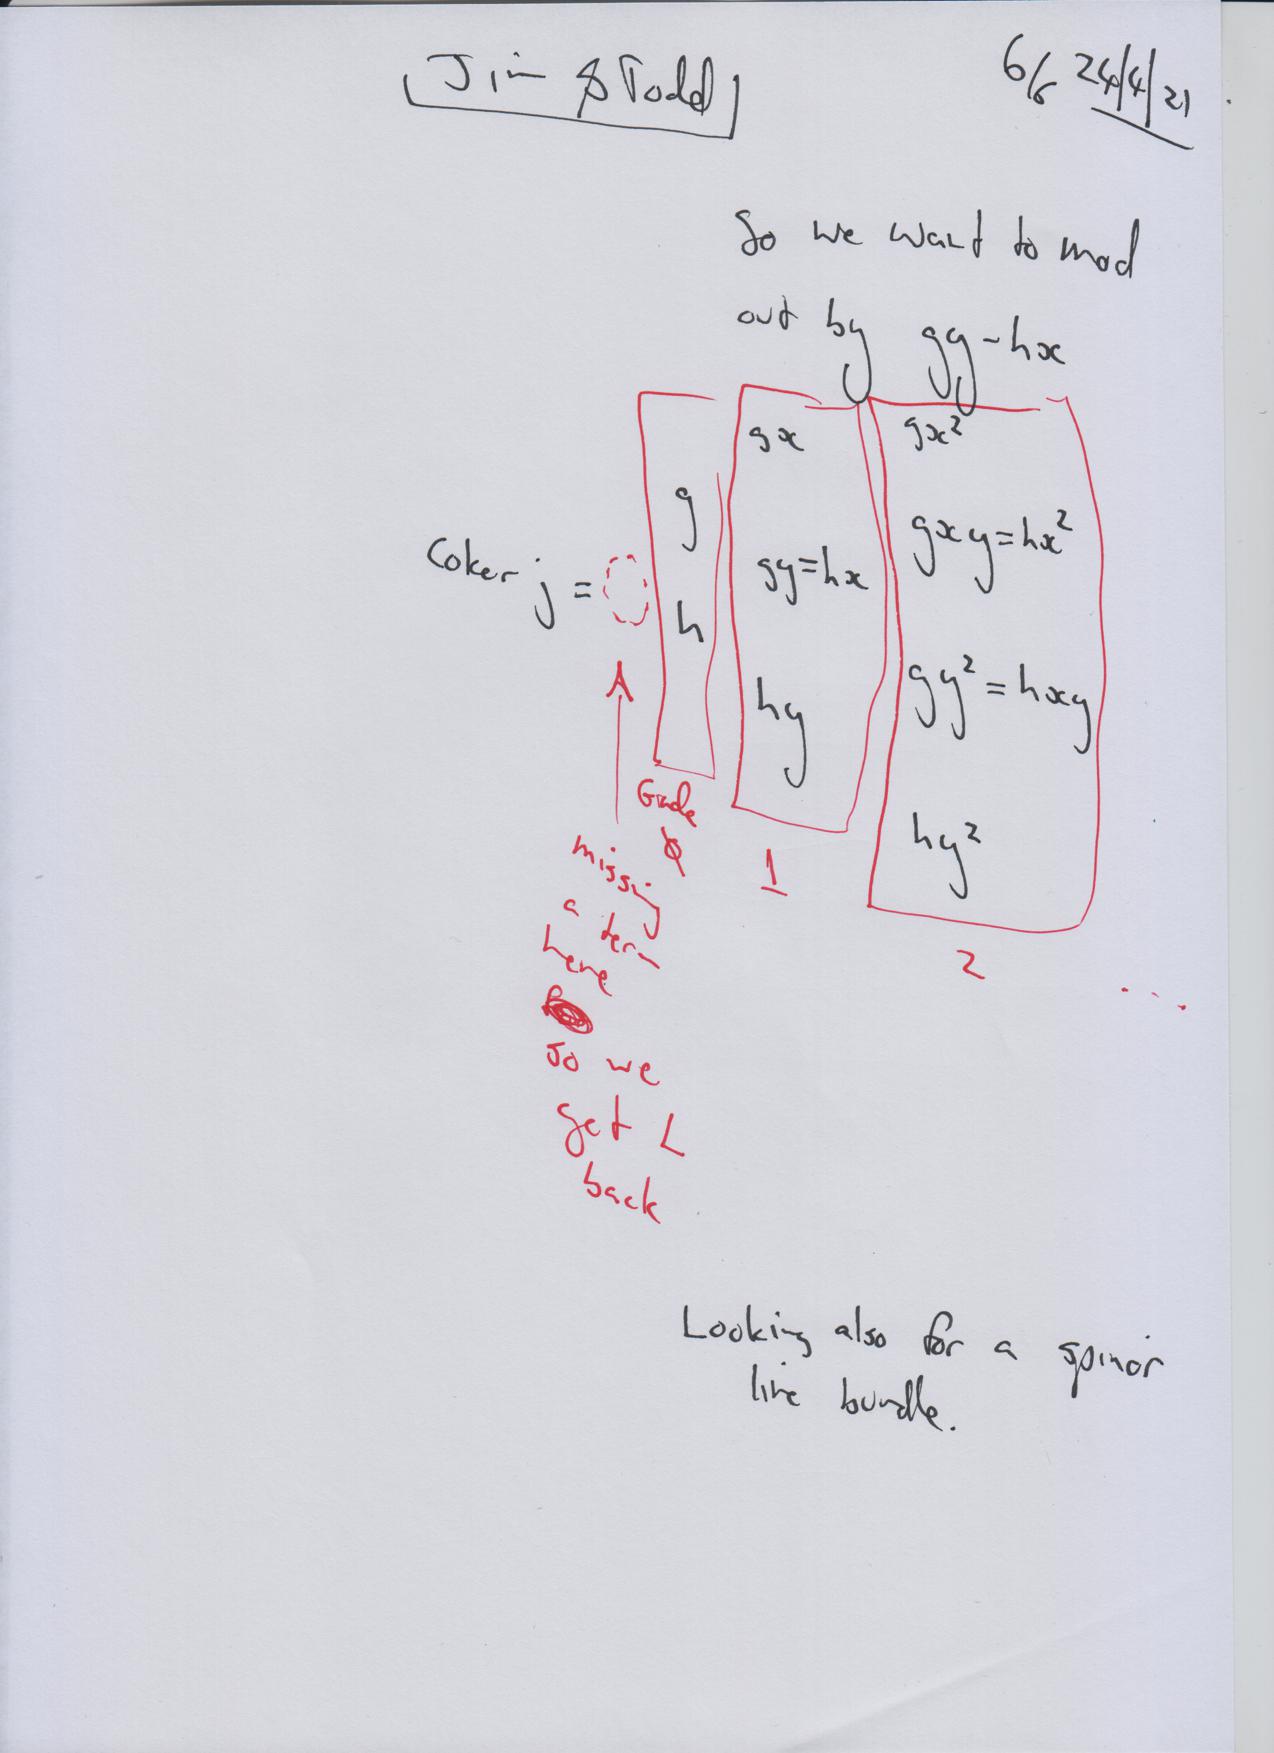 Jim & Todd
6/6 24/4/21
So we want to mod
out by gy-hx
gx
gx²
g
gxy=hx²
Coker j =
gy=hx
h
gy²=hxy
hy
hy²
Grade
0
1
2
....
missing
a term
here
so we
get L
back
Looking also for a spinor
line bundle.